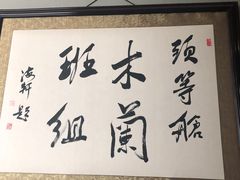 頭等艙
木蘭
班組
海軒題